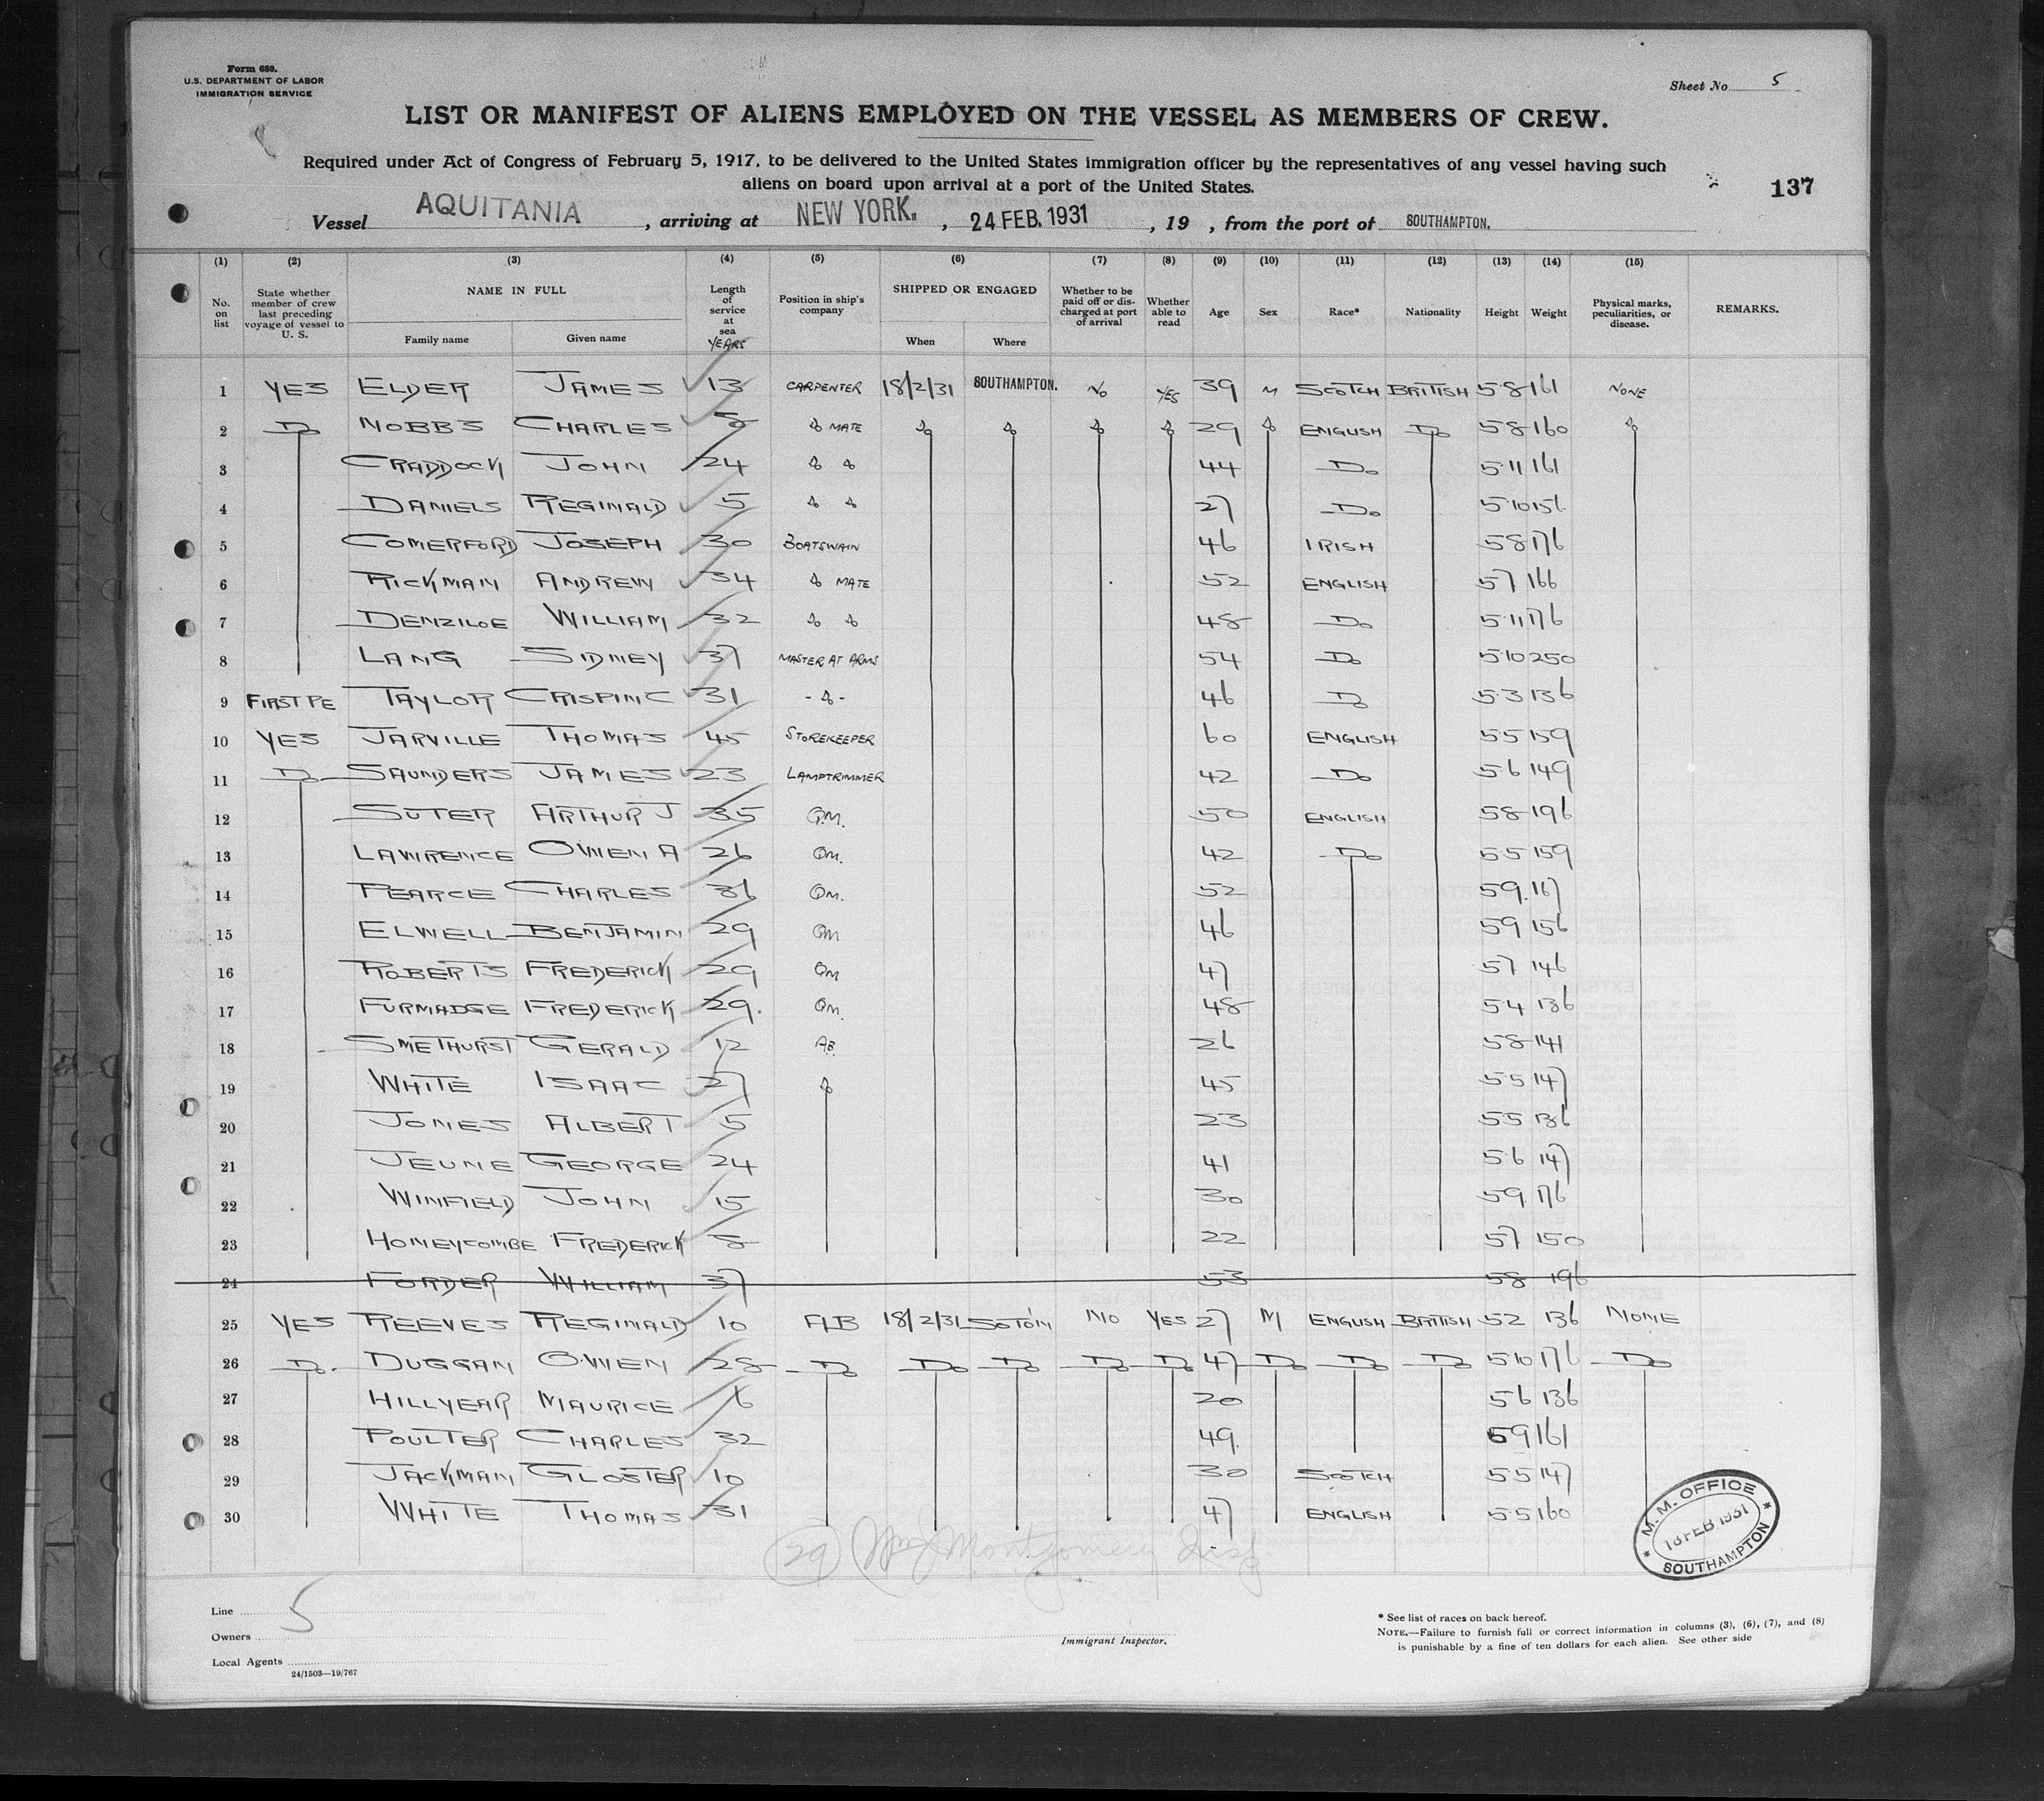 Form 680.
U.S. DEPARTMENT OF LABOR
IMMIGRATION SERVICE
Sheet No 5
LIST OR MANIFEST OF ALIENS EMPLOYED ON THE VESSEL AS MEMBERS OF CREW.
Required under Act of Congress of February 5, 1917, to be delivered to the United States immigration officer by the representatives of any vessel having such
aliens on board upon arrival at a port of the United States.
137
Vessel AQUITANIA, arriving at NEW YORK., 24 FEB. 1931, 19 , from the port of SOUTHAMPTON.
(1) (2) (3) (4) (5) (6) (7) (8) (9) (10) (11) (12) (13) (14) (15)
No. on list State whether member of crew last preceding voyage of vessel to U. S. NAME IN FULL Family name Given name Length of service at sea YEARS Position in ship's company SHIPPED OR ENGAGED When Where Whether to be paid off or discharged at port of arrival Whether able to read Age Sex Race* Nationality Height Weight Physical marks, peculiarities, or disease. REMARKS.
1 YES ELDER JAMES 13 CARPENTER 18/2/31 SOUTHAMPTON. NO YES 39 M SCOTCH BRITISH 5·8 161 NONE
2 Do NOBBS CHARLES 8 Do MATE Do Do Do Do 29 Do ENGLISH Do 5 8 160 Do
3 CRADDOCK JOHN 24 Do Do 44 Do 5·11 161
4 DANIELS REGINALD 5 Do Do 27 Do 5·10 156
5 COMERFORD JOSEPH 30 BOATSWAIN 46 IRISH 5 8 176
6 RICKMAN ANDREW 34 Do MATE 52 ENGLISH 5 7 166
7 DENZILOE WILLIAM 32 Do Do 48 Do 5·11 176
8 LANG SIDNEY 37 MASTER AT ARMS 54 Do 5·10 250
9 FIRST PE TAYLOR CRISPIN C 31 - Do - 46 Do 5·3 136
10 YES JARVILLE THOMAS 45 STOREKEEPER 60 ENGLISH 5·5 159
11 Do SAUNDERS JAMES 23 LAMPTRIMMER 42 Do 5·6 149
12 SUTER ARTHUR J 35 Q.M. 50 ENGLISH 5 8 196
13 LAWRENCE OWEN A 26 QM. 42 Do 5·5 159
14 PEARCE CHARLES 36 QM. 52 5 9. 167
15 ELWELL BENJAMIN 29 QM 46 5 9 156
16 ROBERTS FREDERICK 29 QM 47 5 7 146
17 FURMADGE FREDERICK 29. QM. 48 5 4 136
18 SMETHURST GERALD 12 A.B. 26 5 8 141
19 WHITE ISAAC 27 Do 45 5 5 147
20 JONES ALBERT 5 23 5 5 136
21 JEUNE GEORGE 24 41 5 6 147
22 WINFIELD JOHN 15 30 5 9 176
23 HONEYCOMBE FREDERICK 8 22 5 7 150
24 FORDER WILLIAM 37 53 5 8 196
25 YES REEVES REGINALD 10 AB 18/2/31 SOTON NO YES 27 M ENGLISH BRITISH 5 2 136 NONE
26 Do. DUGGAN OWEN 28 Do Do Do Do Do 47 Do Do Do 5·10 176 Do
27 HILLYEAR MAURICE 6 20 5 6 136
28 POULTER CHARLES 32 49. 5 9 161
29 JACKMAN GLOSTER 10 30 SCOTCH 5 5 147
30 WHITE THOMAS 31 47 ENGLISH 5·5 160
29 Wm J Montgomery Insp.
M. M. OFFICE
18 FEB 1931
SOUTHAMPTON
Line
5
Owners
Local Agents
24/1503—19/767
Immigrant Inspector.
* See list of races on back hereof.
NOTE.—Failure to furnish full or correct information in columns (3), (6), (7), and (8)
is punishable by a fine of ten dollars for each alien. See other side